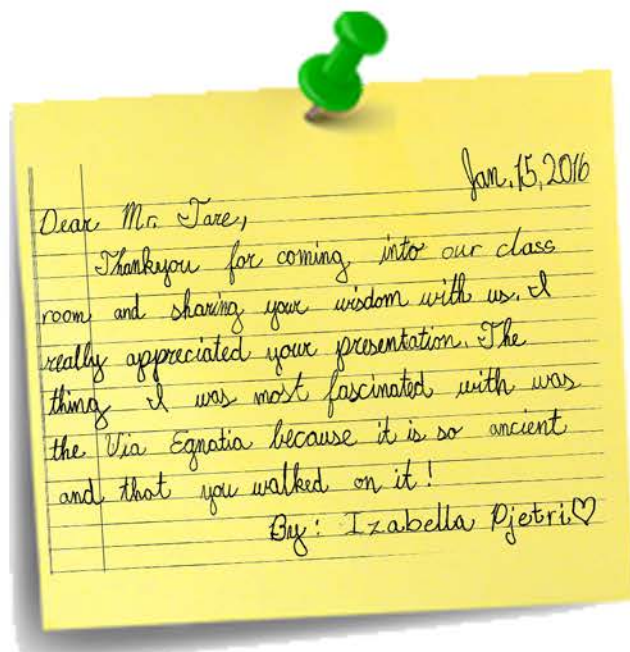 Jan. 15, 2016
Dear Mr. Tare,
Thankyou for coming into our class
room and sharing your wisdom with us. I
really appreciated your presentation. The
thing I was most fascinated with was
the Via Egnatia because it is so ancient
and that you walked on it!
By: Izabella Pjetri♡